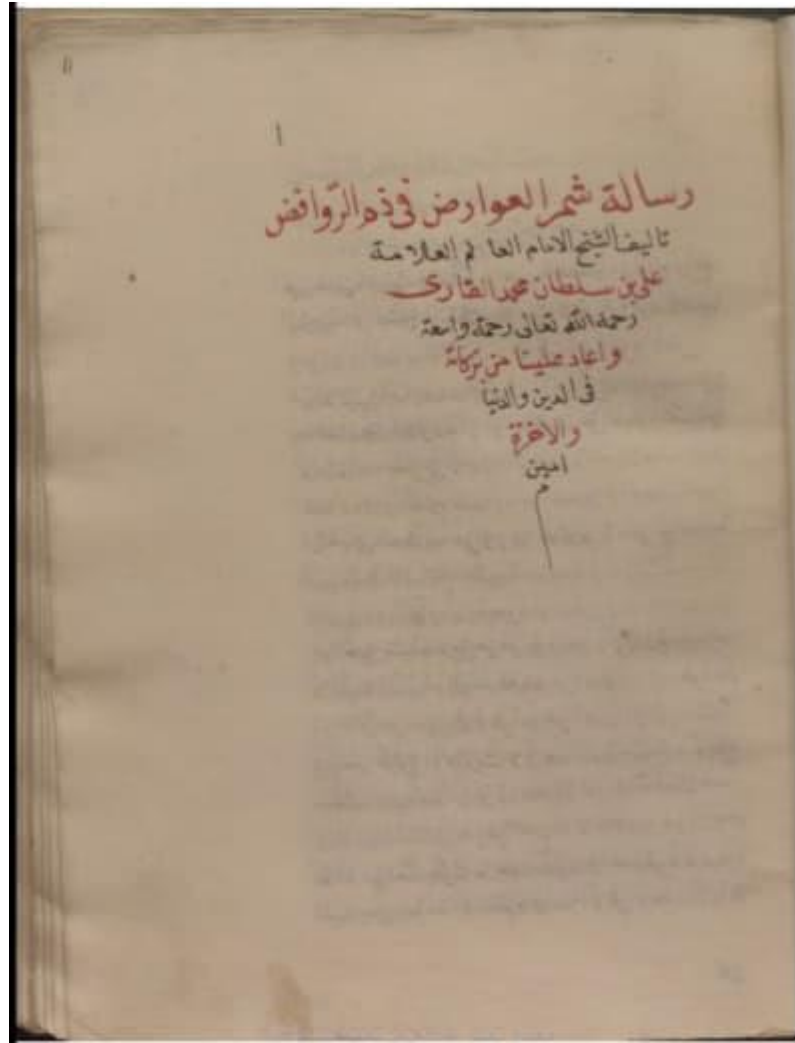 ١١
١
رسالة شم العوارض في ذم الروافض
تاليف الشيخ الامام العالم العلامة
على بن سلطان محمد القارى
رحمه الله تعالى رحمة واسعة
واعاد علينا من بركاته
في الدين والدنيا
والاخرة
امين
م